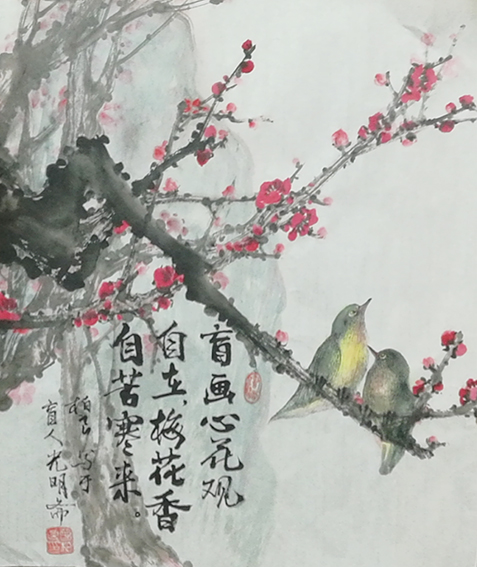 盲画心花观
自在、梅花香
自苦寒来。
写于
盲人光明斋